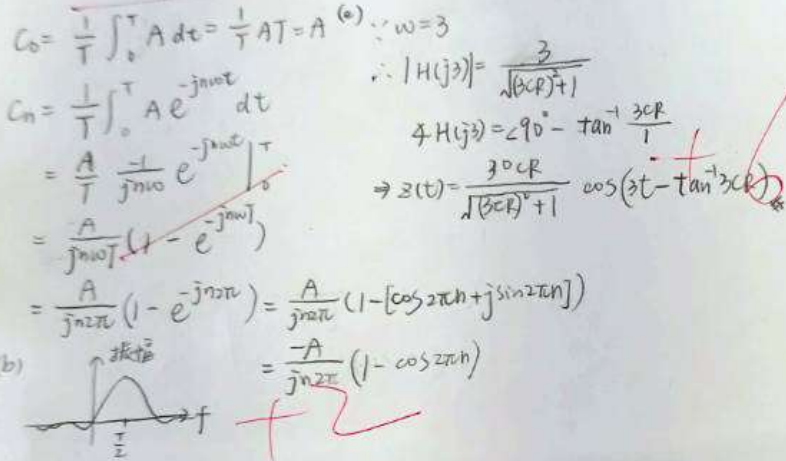 C₀ = 1/T ∫₀ᵀ A dt = 1/T AT = A
Cₙ = 1/T ∫₀ᵀ A e^(-jnωt) dt
= A/T -1/(jnω) e^(-jnωt) |₀ᵀ
= A/(jnωT) (1 - e^(-jnωT))
= A/(jn2π) (1 - e^(-jn2π)) = A/(jn2π) (1 - [cos2πn + jsin2πn])
= -A/(jn2π) (1 - cos2πn)
b)
振幅
f
T/2
+2
(e) ∵ ω = 3
∴ |H(j3)| = 3/√((3CR)²+1)
∡H(j3) = ∠90° - tan⁻¹ 3CR/1
⇒ z(t) = 30CR/√((3CR)²+1) cos(3t - tan⁻¹3CR)
+6